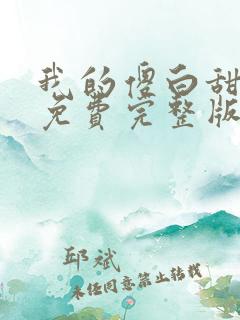 我的傻白甜
免费完整版
邱斌
未经同意禁止转载